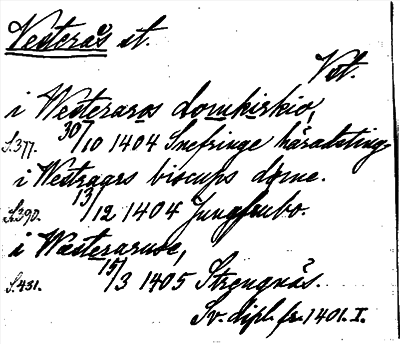 Västerås st.
Vst.
i Westeraros domkirkio,
S. 377. 30/10 1404 Snefringe häradsting
i Westraars biscups döme.
S. 390. 13/12 1404 Jungfrubo.
i Wæsteraruse,
S. 431. 15/3 1405 Strengnäs.
Sv. dipl. fr. 1401. I.